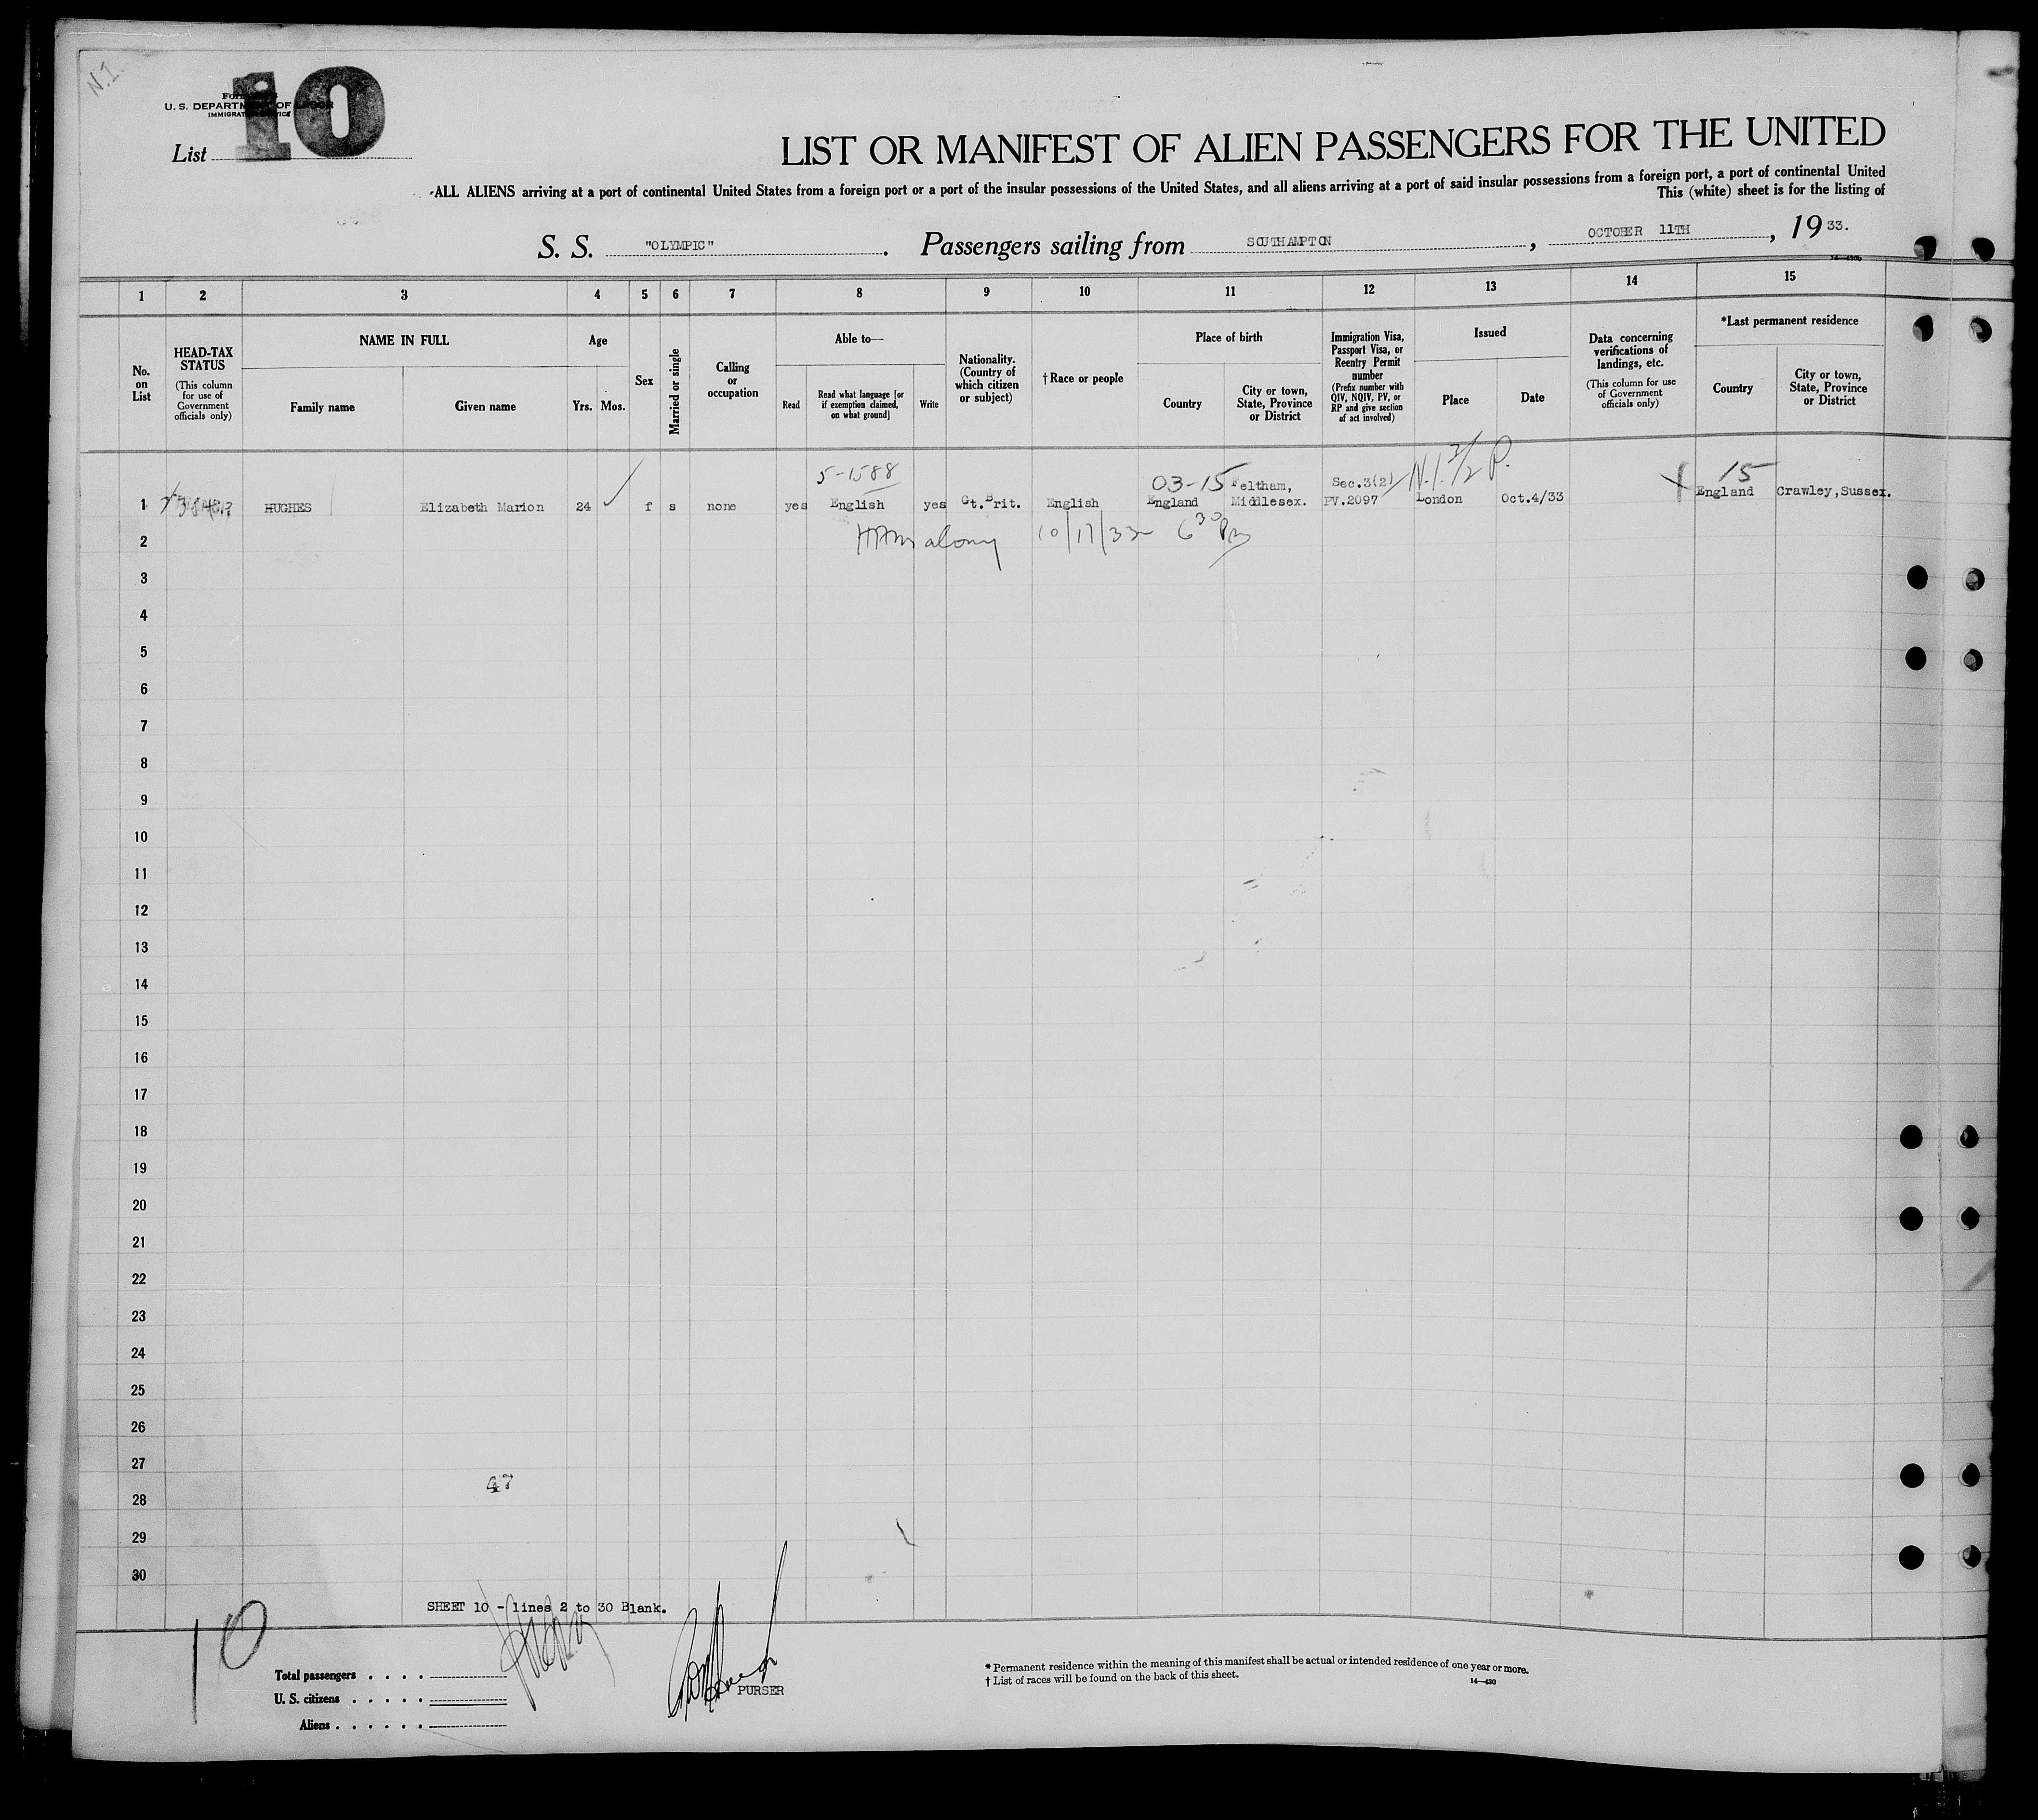 N.I.
10
U. S. DEPARTMENT OF LABOR
IMMIGRATION SERVICE
List
LIST OR MANIFEST OF ALIEN PASSENGERS FOR THE UNITED
ALL ALIENS arriving at a port of continental United States from a foreign port or a port of the insular possessions of the United States, and all aliens arriving at a port of said insular possessions from a foreign port, a port of continental United
This (white) sheet is for the listing of
S. S. "OLYMPIC". Passengers sailing from SOUTHAMPTON, OCTOBER 11TH, 19 33.
1 2 3 4 5 6 7 8 9 10 11 12 13 14 15
No. on List
HEAD-TAX STATUS
(This column for use of Government officials only)
NAME IN FULL
Family name
Given name
Age
Yrs. Mos.
Sex
Married or single
Calling or occupation
Able to—
Read
Read what language [or if exemption claimed, on what ground]
Write
Nationality. (Country of which citizen or subject)
†Race or people
Place of birth
Country
City or town, State, Province or District
Immigration Visa, Passport Visa, or Reentry Permit number
(Prefix number with QIV, NQIV, PV, or RP and give section of act involved)
Issued
Place
Date
Data concerning verifications of landings, etc.
(This column for use of Government officials only)
*Last permanent residence
Country
City or town, State, Province or District
5-1588 03-15 Feltham, Sec.3(2) N.I. P. 15
1 HUGHES Elizabeth Marion 24 f s none yes English yes Gt.Brit. English England Middlesex. PV.2097 London Oct.4/33 England Crawley,Sussex.
2 10/17/33 6 30 Pm
3
4
5
6
7
8
9
10
11
12
13
14
15
16
17
18
19
20
21
22
23
24
25
26
27
47
28
29
30
SHEET 10 - lines 2 to 30 Blank.
10
Total passengers . . . .
U. S. citizens . . . . .
Aliens . . . . . .
PURSER
* Permanent residence within the meaning of this manifest shall be actual or intended residence of one year or more.
† List of races will be found on the back of this sheet.
14—430